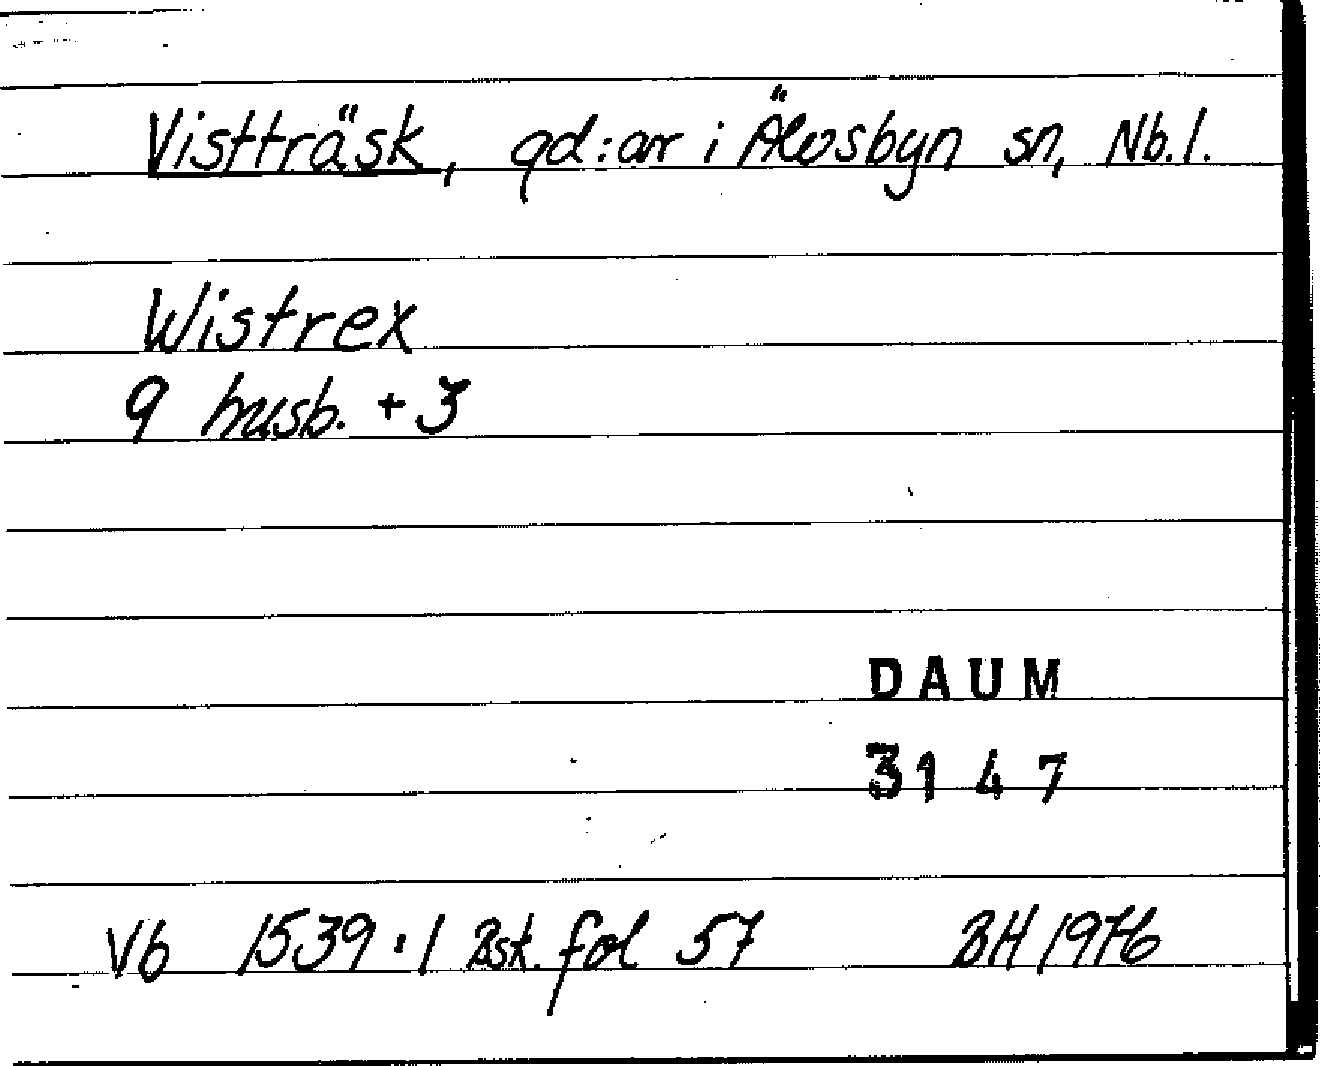 Vistträsk, gd:ar i Älvsbyn sn, Nb.l.
Wistrex
9 husb. + 3
DAUM
3147
Vb 1539:1 Bsk. fol 57 BH 1976